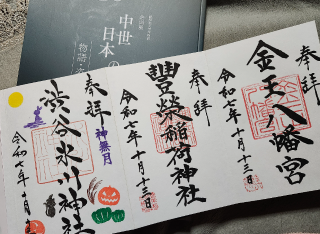 中世
日本の
物語・
奉拝
金王八幡宮
令和七年十月十三日
奉拝
豊榮稲荷神社
令和七年十月十三日
奉拝
神無月
渋谷氷川神社
令和七年十月